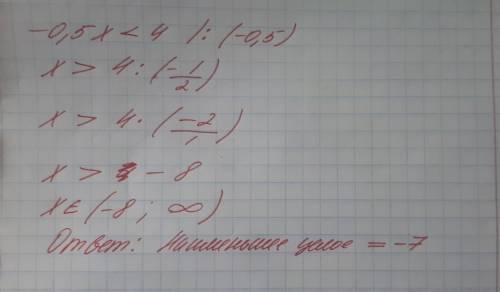 -0,5x < 4 |: (-0,5)
x > 4 : (-1/2)
x > 4 · (-2/1)
x > -8
x ∈ (-8 ; ∞)
Ответ: Наименьшее целое = -7